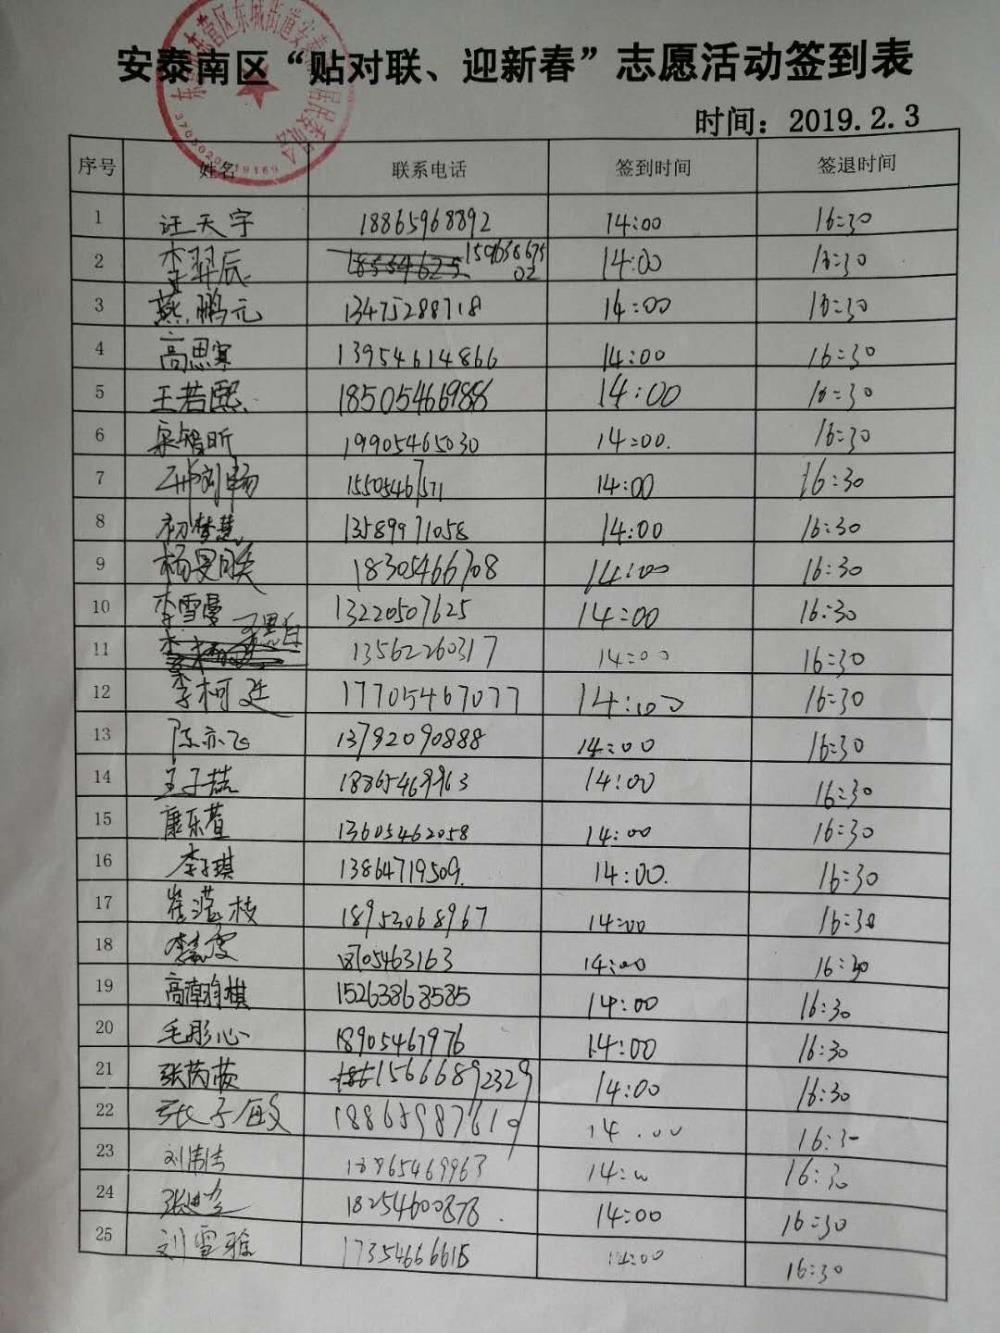 安泰南区“贴对联、迎新春”志愿活动签到表
时间：2019.2.3
序号 姓名 联系电话 签到时间 签退时间
1 汪天宇 18865968892 14:00 16:30
2 李羿辰 14:00 16:30
3 燕鹏元 13475288718 14:00 16:30
4 高思 13954614866 14:00 16:30
5 王若熙 18505466988 14:00 16:30
6 19905465030 14:00. 16:30
7 14:00 16:30
8 初梦慧 13589971058 14:00 16:30
9 杨 18305466708 14:00 16:30
10 李雪曼 13220507625 14:00 16:30
11 13562260317 14:00 16:30
12 李柯廷 17705467077 14:00 16:30
13 陈亦飞 13792090888 14:00 16:30
14 王子喆 14:00 16:30
15 康乐萱 13605462058 14:00 16:30
16 李子琪 13864719509. 14:00. 16:30
17 崔滢枝 18953068967 14:00 16:30
18 14:00 16:30
19 15263868585 14:00 16:30
20 毛彤心 18905467976 14:00 16:30
21 张芮 15666892329 14:00 16:30
22 张子 18865987619 14.00 16:3
23 刘 18865469963 14: 16:30
24 张 18254600878. 14:00 16:30
25 刘雪 14:00 16:30